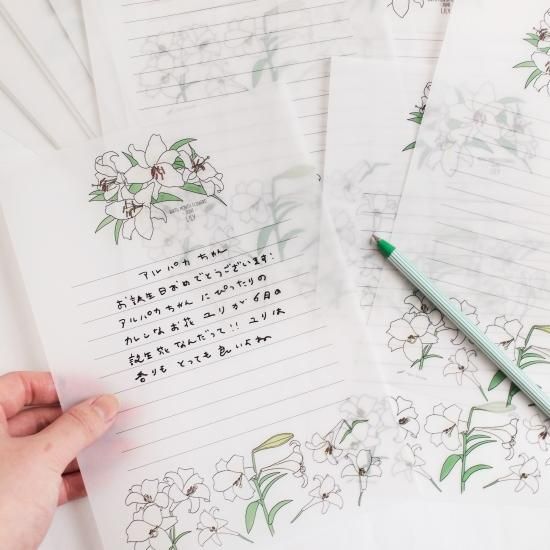 BIRTH MONTH FLOWERS
JUNE
LILY
アルパカちゃん
お誕生日おめでとうございます!
アルパカちゃんにぴったりの
カレンなお花 ユリが6月の
誕生花なんだって!! ユリは
香りもとっても良いよね
LILY